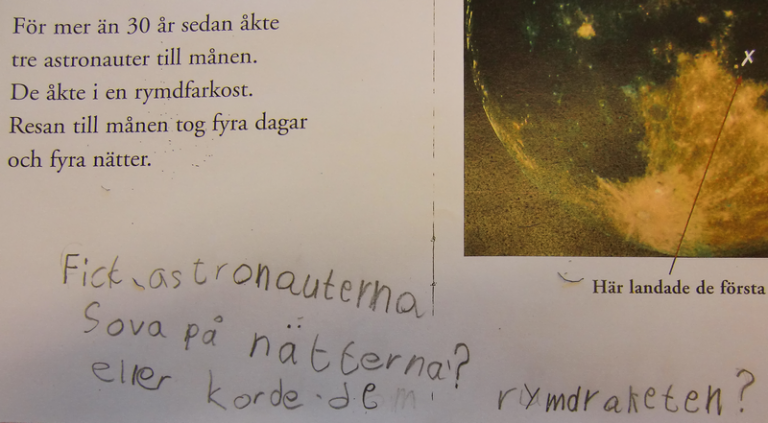 För mer än 30 år sedan åkte
tre astronauter till månen.
De åkte i en rymdfarkost.
Resan till månen tog fyra dagar
och fyra nätter.
X
Här landade de första
Fick astronauterna
Sova på nätterna?
eller korde de rymdraketen?